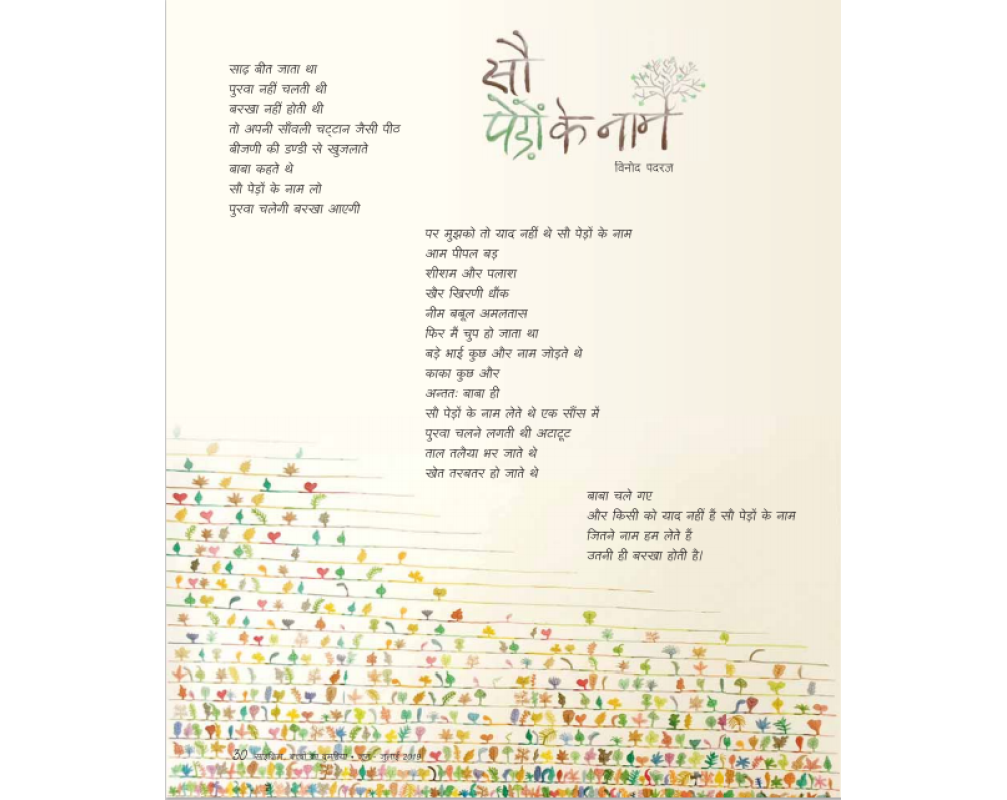 सौ
पेड़ों के नाम
विनोद पदरज
साढ़ बीत जाता था
पुरवा नहीं चलती थी
बरखा नहीं होती थी
तो अपनी साँवली चट्टान जैसी पीठ
बीजणी की डण्डी से खुजलाते
बाबा कहते थे
सौ पेड़ों के नाम लो
पुरवा चलेगी बरखा आएगी
पर मुझको तो याद नहीं थे सौ पेड़ों के नाम
आम पीपल बड़
शीशम और पलाश
खैर खिरणी धौंक
नीम बबूल अमलतास
फिर मैं चुप हो जाता था
बड़े भाई कुछ और नाम जोड़ते थे
काका कुछ और
अन्ततः बाबा ही
सौ पेड़ों के नाम लेते थे एक साँस में
पुरवा चलने लगती थी अटाटूट
ताल तलैया भर जाते थे
खेत तरबतर हो जाते थे
बाबा चले गए
और किसी को याद नहीं हैं सौ पेड़ों के नाम
जितने नाम हम लेते हैं
उतनी ही बरखा होती है।
30